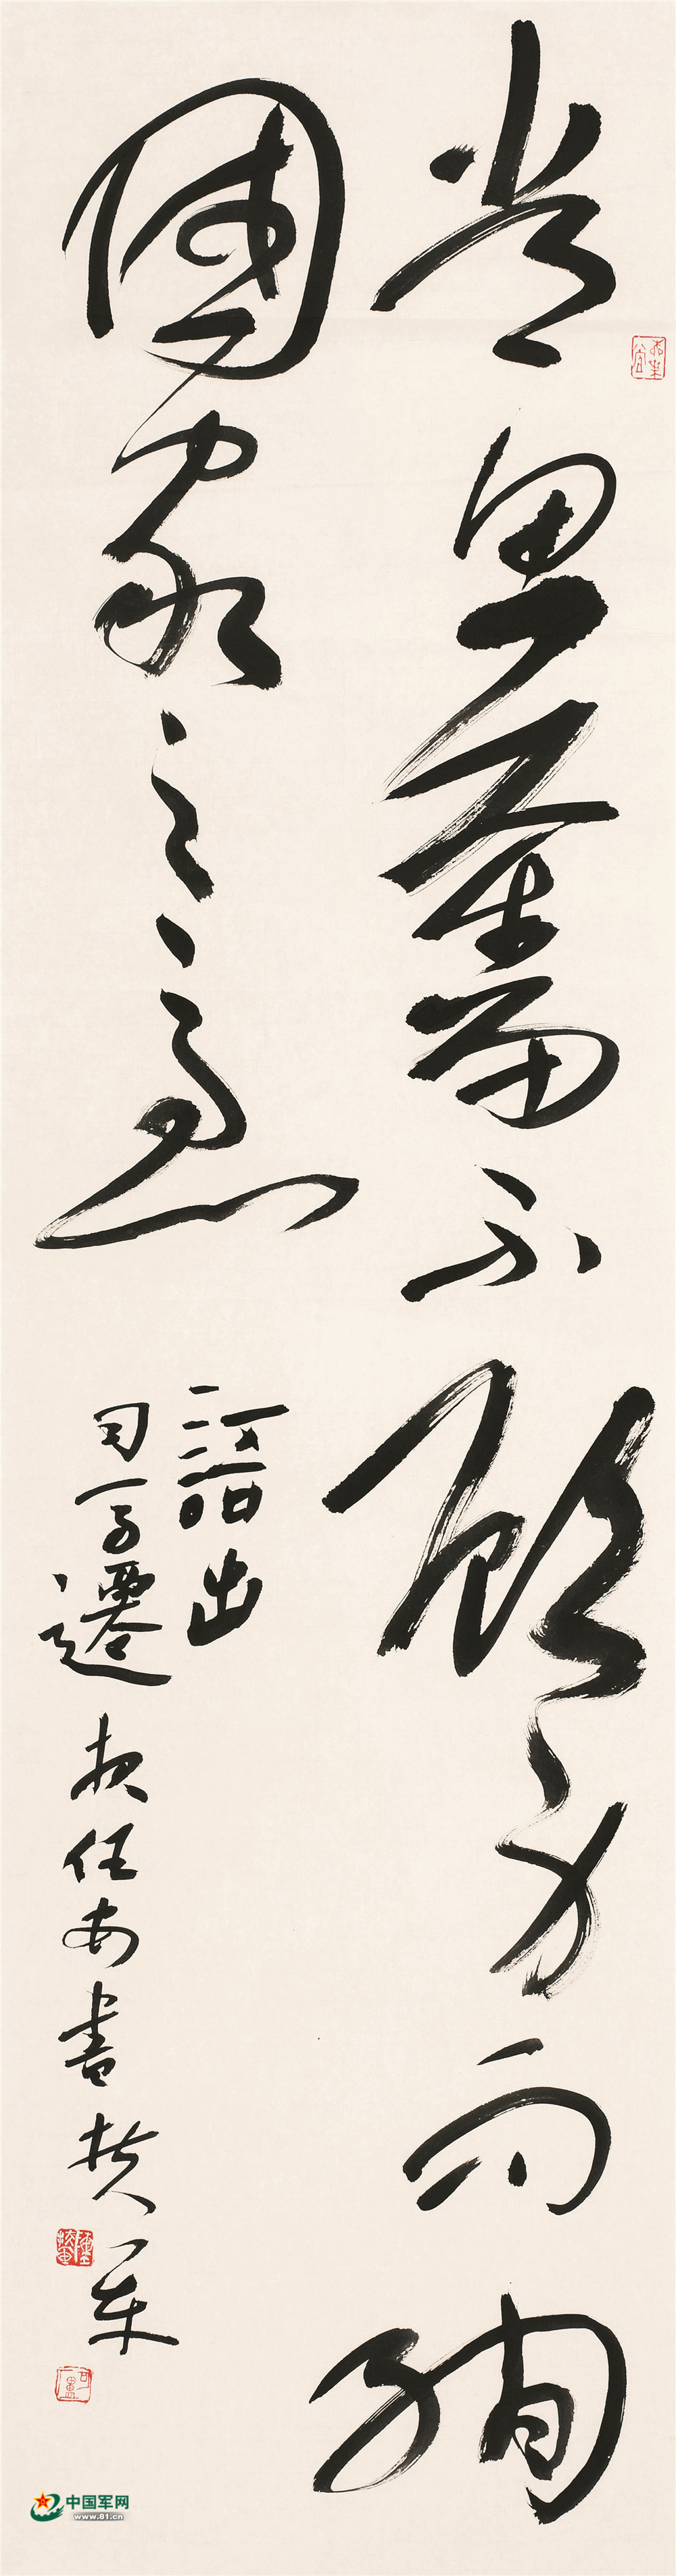 常思奮不顧身而殉
國家之急
語出
司馬遷報任安書
中国军网
www.81.cn